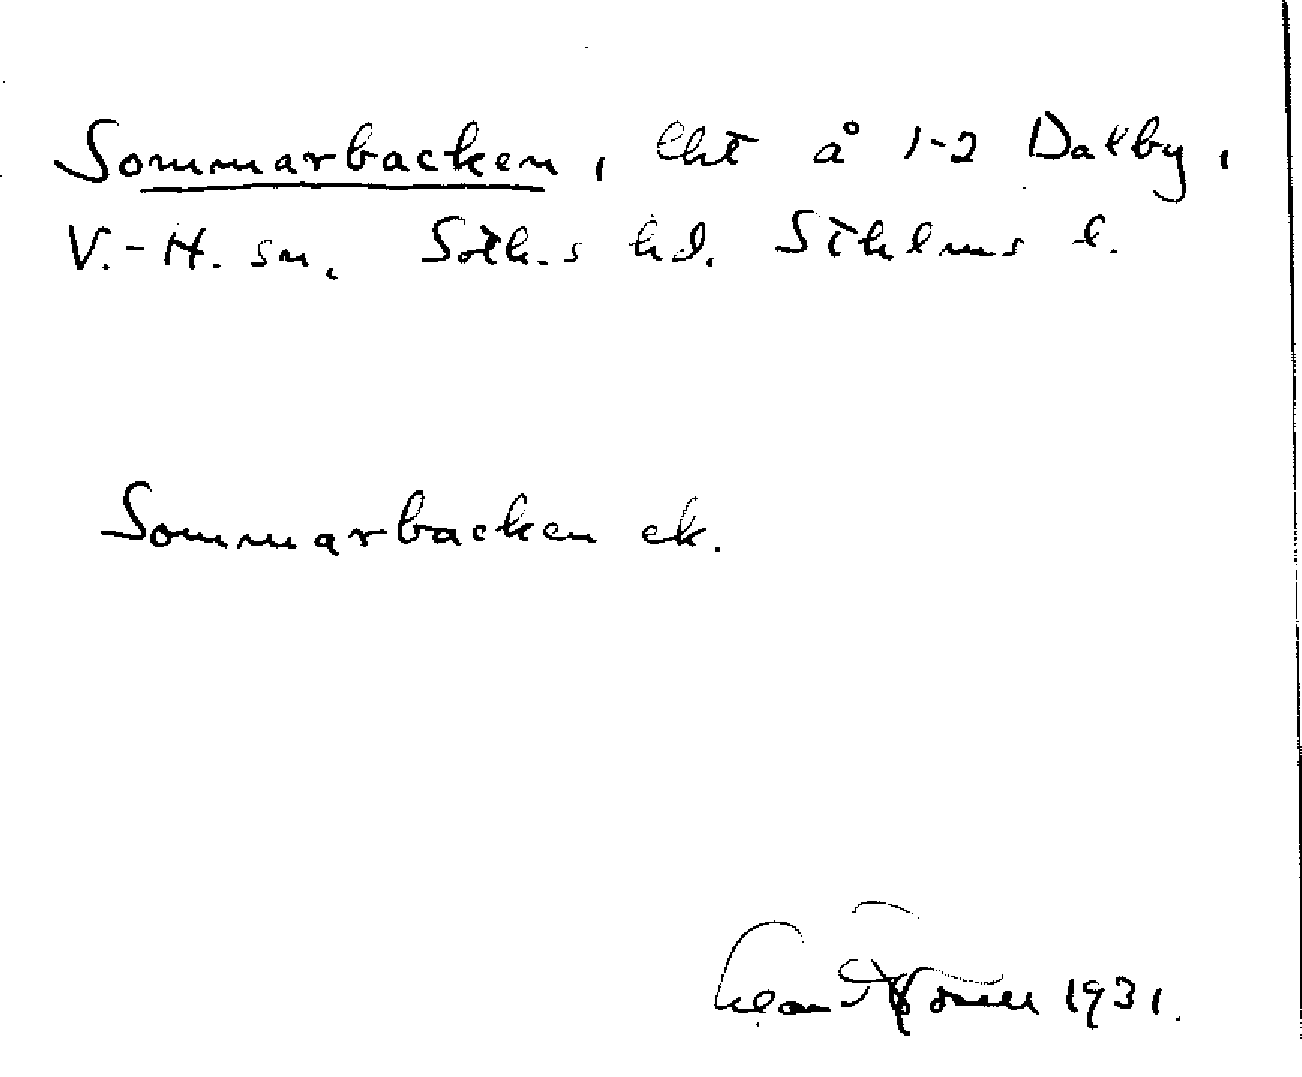 Sommarbacken, lht å 1-2 Dalby,
V.-H. sn. Soth.s hd. Sthlms l.
Sommarbacken ek.
1931.